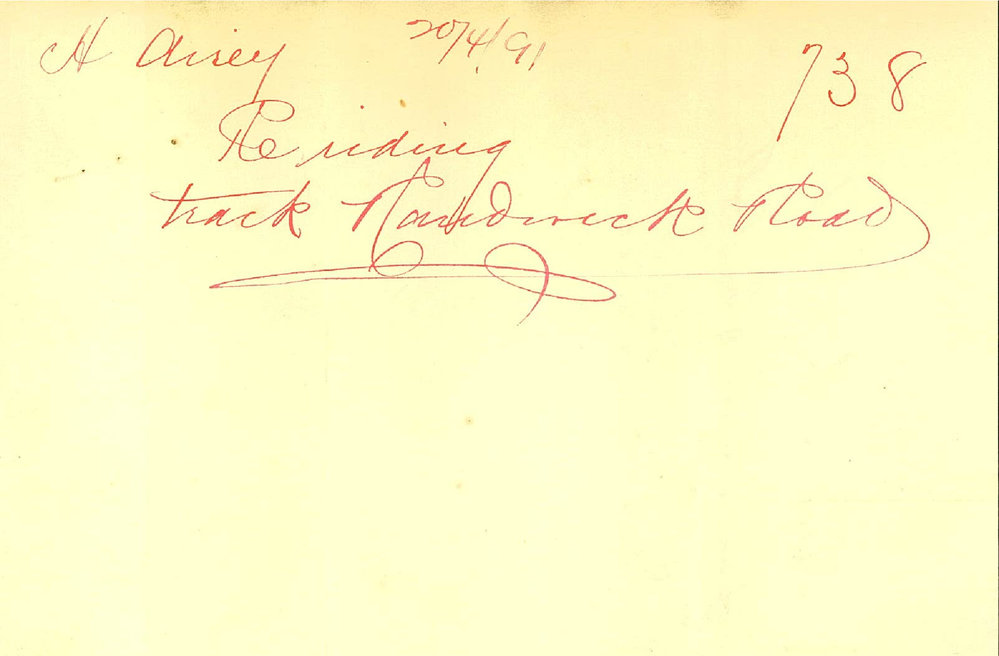 H Airey 20/4/91 738
Re riding
track Randwick Road